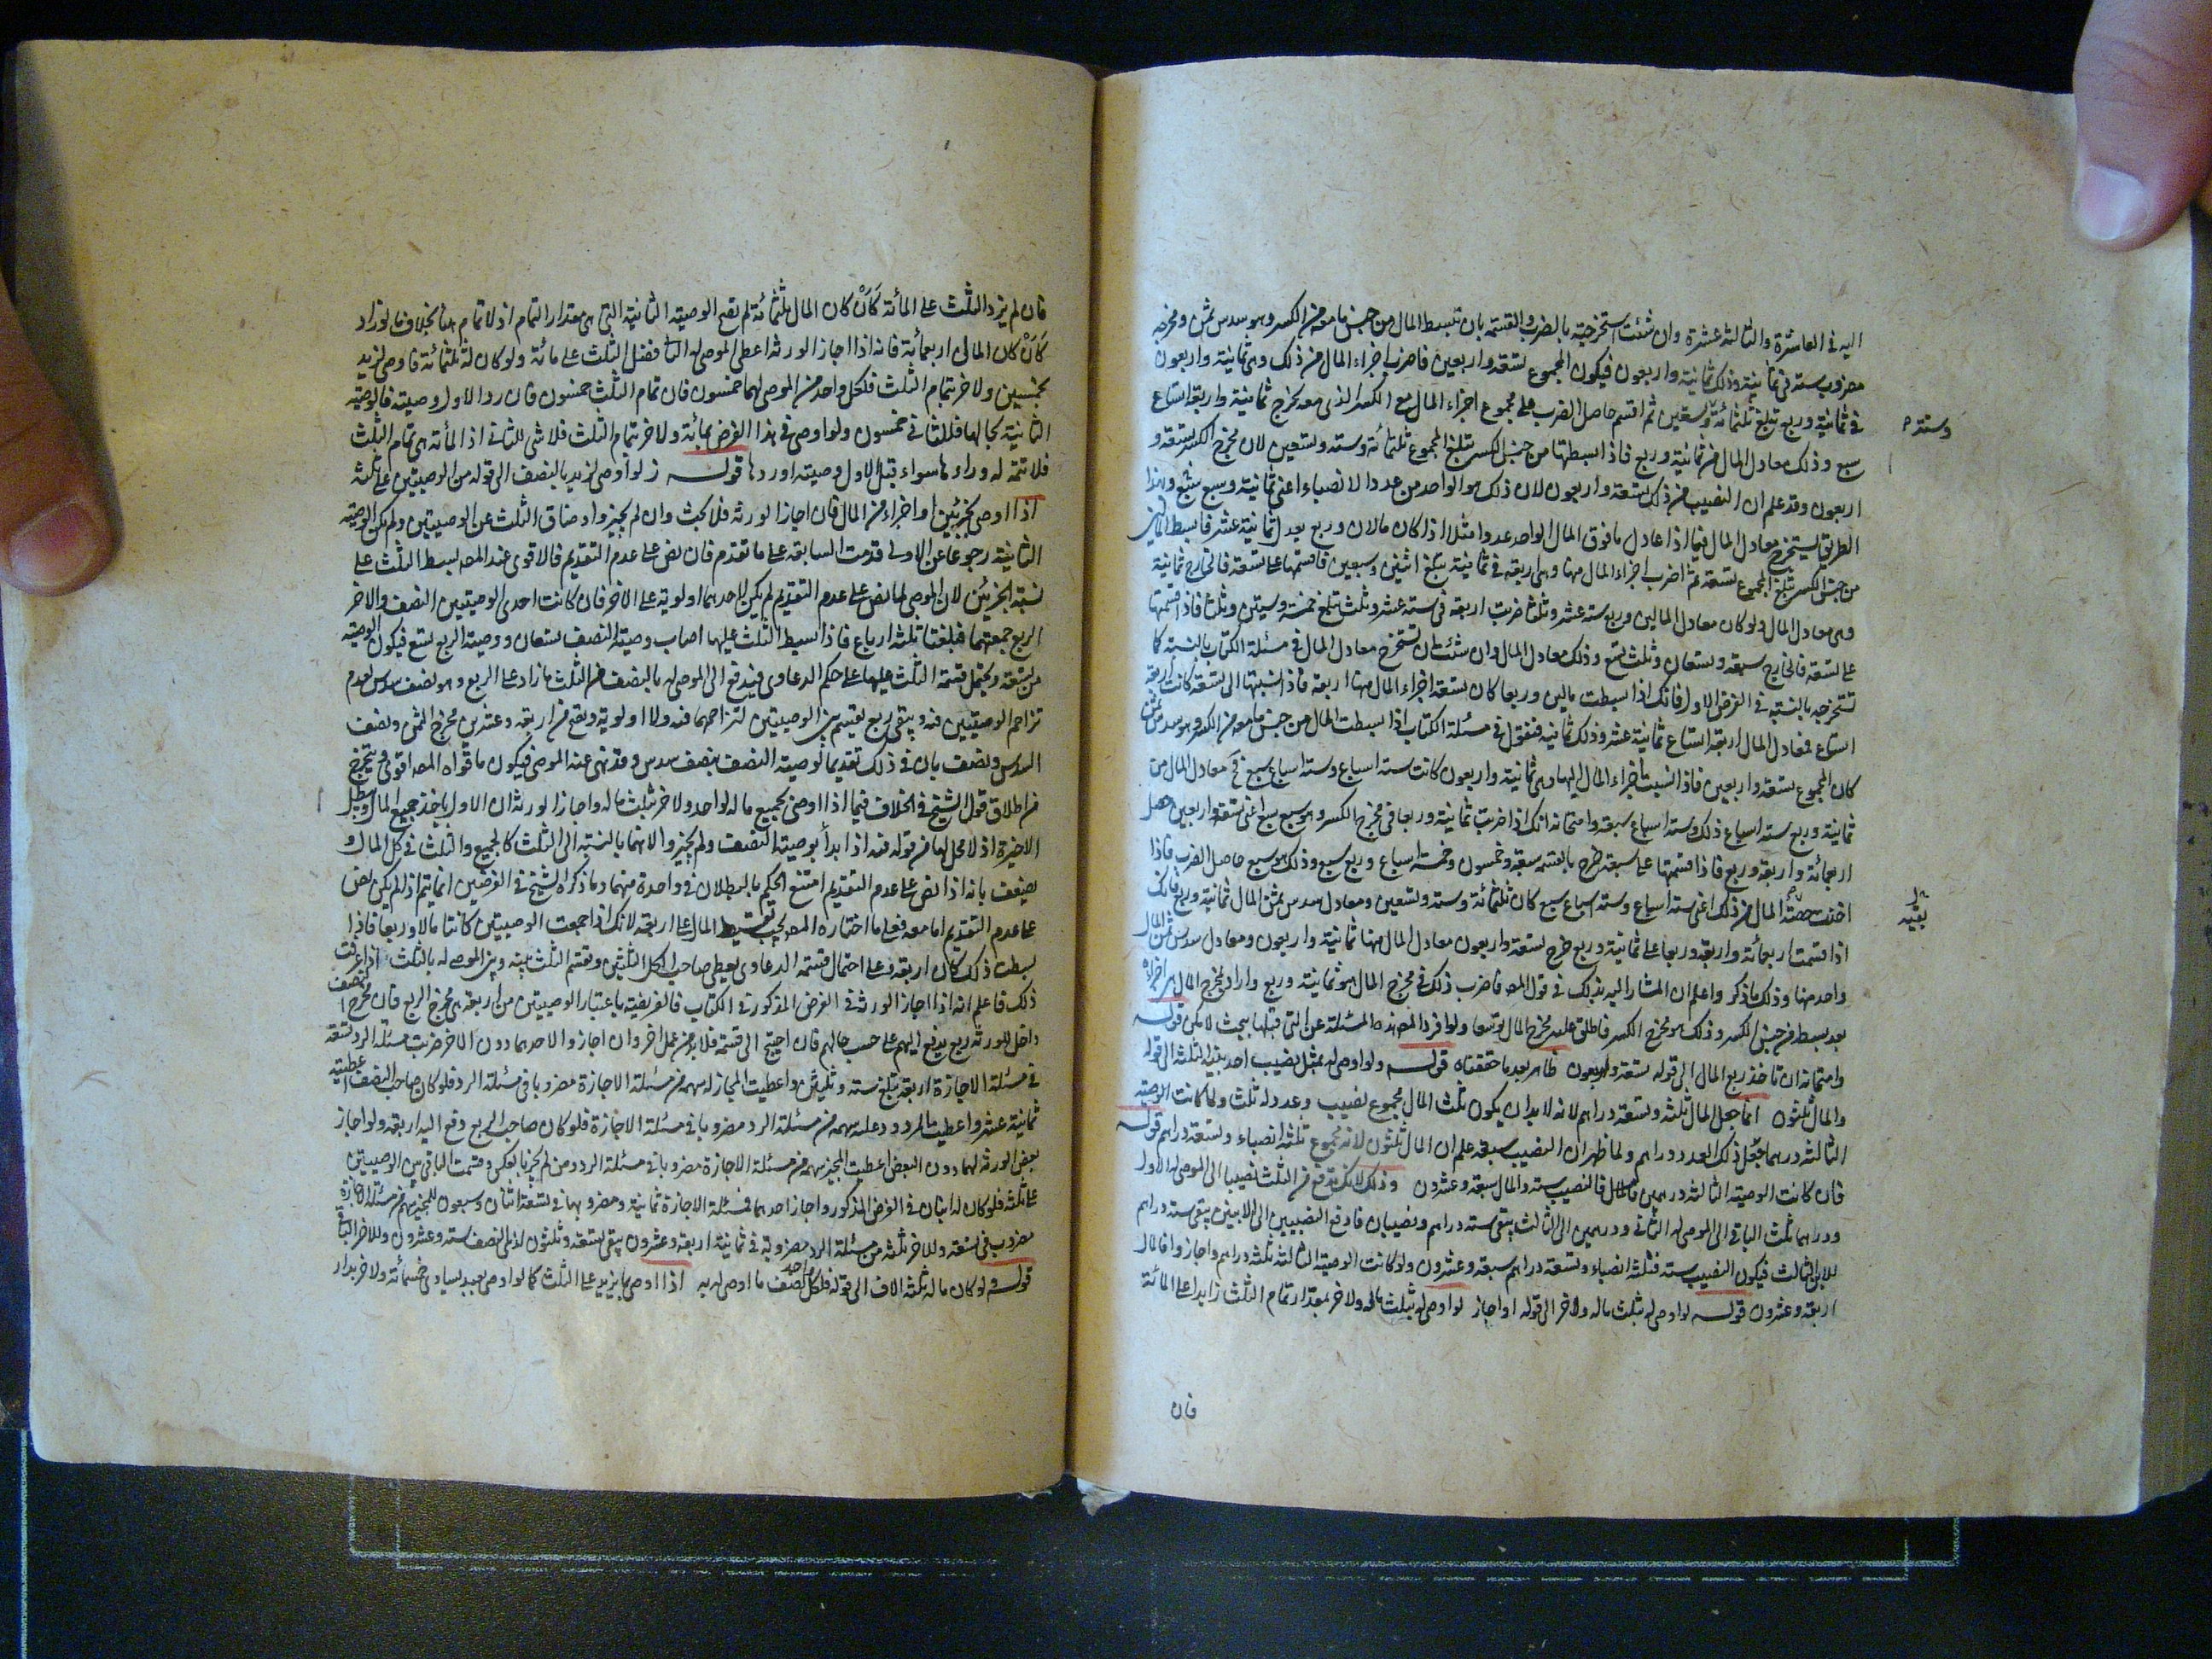 اليه في العاشرة والثالثة عشرة وان شئت استخرجته بالضرب والقسمة بان تبسط المال من جنس ما معه من الكسر وهو سدس ثمن ومخرجه
مضروب ستة في ثمانية وذلك ثمانية واربعون فيكون المجموع تسعة واربعين فاضرب اجزاء المال من ذلك وهي ثمانية واربعون
في ثمانية وربع تبلغ ثلثمائة وتسعين ثم اقسم حاصل الضرب على مجموع اجزاء المال مع الكسر الذي معه يخرج ثمانية واربعة اسباع
وستة
سبع وذلك معادل المال من ثمانية وربع فاذا بسطتها من جنس الكسر تبلغ المجموع ثلثمائة وستة وتسعين لان مخرج الكسر تسعة و
اربعون وقد علم ان النصيب من ذلك تسعة واربعون لان ذلك هو الواحد من عدد الانصباء اعني ثمانية وسبع سبع وهذا
الطريق يستخرج معادل المال فيما اذا عادل ما فوق المال الواحد عددا مثلا اذا كان مالان وربع يعدل ثمانية عشر فابسط المالين
من جنس الكسر تبلغ المجموع تسعة ثم اضرب اجزاء المال منها وهي اربعة في ثمانية عشر تبلغ اثنين وسبعين فاقسمها على تسعة فالخارج ثمانية
وهي معادل المال ولو كان معادل المالين وربع ستة عشر وثلثا ضربت اربعة في ستة عشر وثلث تبلغ خمسة وستين وثلثا فاذا قسمتها
على تسعة فالخارج سبعة وتسعان وثلث تسع وذلك معادل المال وان شئت ان تستخرج معادل المال في مسئلة الكتاب بالنسبة كما
تستخرجه بالنسبة في الفرض الاول فانك اذا بسطت مالين وربعا كان تسعة اجزاء المال منها اربعة فاذا نسبتها الى تسعة كانت اربعة
اتساع فمعادل المال اربعة اتساع ثمانية عشر وذلك ثمانية فنقول في مسئلة الكتاب اذا بسطت المال من جنس ما معه من الكسر وهو سدس ثمن
كان المجموع تسعة واربعين فاذا نسبت اجزاء المال اليها وهي ثمانية واربعون كانت ستة اسباع وستة اسباع سبع فمعادل المال من
ثمانية وربع ستة اسباع ذلك وستة اسباع سبعه وامتحانه انك اذا ضربت ثمانية وربعا في مخرج الكسر وهو سبع سبع اعني تسعة واربعين حصل
اربعمائة واربعة وربع فاذا قسمتها على سبعة خرج بالقسمة سبعة وخمسون وخمسة اسباع وربع سبع وذلك هو سبع حاصل الضرب فاذا
اخذت حصة المال من ذلك اعني ستة اسباع وستة اسباع سبع كان ثلثمائة وستة وتسعين ومعادل سدس ثمن المال ثمانية وربع فانك
بقية
اذا قسمت اربعمائة واربعة وربعا على ثمانية وربع خرج تسعة واربعون معادل المال منها ثمانية واربعون ومعادل سدس ثمن المال
واحد منها وذلك ما ذكر واعلم ان المشار اليه بذلك في قول المصـ فاضرب ذلك في مخرج المال هو ثمانية وربع واراد بمخرج المال اجزاءه
بعد بسطه من جنس الكسر وذلك هو مخرج الكسر فاطلق عليه مخرج المال توسعا ولو افرد المصـ هذه المسئلة عن التي قبلها بحيث لا قوله
وامتحانه ان تاخذ ربع المال الى قوله تسعة واربعون ظاهر بعد ما حققناه قوله ولو اوصى له بمثل نصيب احد بنيه الثلثة الى قوله
والمال ثلثون انما جعل المال ثلثة وتسعة دراهم لانه لا بد ان يكون ثلث المال مجموع نصيب وعدد له ثلث ولما كانت الوصية
الثالثة درهما جعل ذلك العدد دراهم ولما ظهر ان النصيب سبعة علم ان المال ثلثون لانه مجموع ثلثة انصباء وتسعة دراهم قوله
فان كانت الوصية الثالثة درهمين فالنصيب ستة والمال سبعة وعشرون وذلك لانك تدفع من الثلث نصيبا الى الموصى له الاول
ودرهما ثلث الباقي الى الموصى له الثاني ودرهمين الى الثالث يبقى ستة دراهم ونصيبان فادفع النصيبين الى الابنين يبقى ستة دراهم
للابن الثالث فيكون النصيب ستة فثلثة انصباء وتسعة دراهم سبعة وعشرون ولو كانت الوصية الثالثة ثلثة دراهم واجازوا فالمال
اربعة وعشرون قوله لو اوصى له بثلث ماله ولاخر الى قوله او اجاز لو اوصى له بثلث ماله ولاخر بمقدار تمام الثلث زايدا على المائة
فان
فان لم يزد الثلث على المائة كان كان المال ثلثمائة لم تقع الوصية الثانية التي هي مقدار التمام اذ لا تمام هنا بخلاف ما لو زاد
كان كان المال اربعمائة فانه اذا اجاز الورثة اعطى الموصى له الثاني فضل الثلث على مائة ولو كان له ثلثمائة فاوصى لزيد
بخمسين ولاخر بتمام الثلث فلكل واحد من الموصى لهما خمسون فان تمام الثلث خمسون فان رد الاول وصيته فالوصية
الثانية بحالها فللثاني خمسون ولو اوصى في هذا الفرض بمائة ولاخر بتمام الثلث فلا شئ للثاني اذ المائة هي تمام الثلث
فلا تتمة له وراءها سواء قبل الاول وصيته او ردها قوله ز لو اوصى لزيد بالنصف الى قوله من الوصيتين على ثلثة
اذا اوصى بجزئين او اجزاء من المال فان اجاز الورثة فلا بحث وان لم يجيزوا وضاق الثلث عن الوصيتين ولم تكن الوصية
الثانية رجوعا عن الاولى قدمت السابقة على ما تقدم فان نص على عدم التقديم فالاقوى عند المصـ بسط الثلث على
نسبة الجزئين لان الموصي لما نص على عدم التقديم لم يكن لاحدهما اولوية على الاخر فان كانت احدى الوصيتين النصف والاخر
الربع جمعتهما فبلغتا ثلثة ارباع فاذا بسط الثلث عليهما اصاب وصية النصف تسعان ووصية الربع تسع فيكون الوصية
من تسعة ويحتمل قسمة الثلث عليهما على حكم الدعاوى فيدفع الى الموصى له بالنصف من الثلث ما زاد على الربع وهو نصف سدس لعدم
تزاحم الوصيتين فيه ويبقى ربع يقسم بين الوصيتين لتزاحمهما فيه ولا اولوية وتصح من اربعة وعشرين مخرج الثمن ونصف
السدس ويضعف بان في ذلك تقديما لوصية النصف بنصف سدس وقد نهى عنه الموصي فيكون ما قواه المصـ اقوى ويتخرج
من اطلاق قول الشيخ في الخلاف فيما اذا اوصى بجميع ماله لواحد ولاخر بثلث ماله واجاز الورثة ان الاول ياخذ جميع المال وتبطل
الاخيرة اذ لا محل لها من قوله فيه اذا بدأ بوصية النصف ولم يجيزوا لانهما بالنسبة الى الثلث كالجميع والثلث في كل المال و
يضعف بانه اذا نص على عدم التقديم امتنع الحكم بالبطلان في واحدة منهما وما ذكره الشيخ في الفرضين انما يتم اذا لم يكن نص
على عدم التقديم اما معه فعلى ما اختاره المصـ يجب تقسيط المال على اربعة لانك اذا جمعت الوصيتين كانتا مالا وربعا فاذا
بسطت ذلك كان اربعة وعلى احتمال قسمة الدعاوى يعطى صاحب الكل الثلثين ويقسم الثلث بينه وبين الموصى له بالثلث اذا عرفت
ذلك فاعلم انه اذا اجاز الورثة في الفرض المذكور في الكتاب فالفريضة باعتبار الوصيتين من اربعة هي مخرج الربع فان مخرج النصف
داخل للورثة ربع يدفع اليهم على حسب حالهم فان احتيج الى قسمة فلا بد من عمل اخر وان اجازوا لاحدهما دون الاخر ضربت مسئلة الرد تسعة
في مسئلة الاجازة اربعة تبلغ ستة وثلثين واعطيت المجاز له سهمه من مسئلة الاجازة مضروبا في مسئلة الرد فلو كان صاحب النصف اعطيته
ثمانية عشر واعطيت المردود عليه سهمه من مسئلة الرد مضروبا في مسئلة الاجازة فلو كان صاحب الربع دفع اليه اربعة ولو اجاز
بعض الورثة لهما دون البعض اعطيت المجيز سهمه من مسئلة الاجازة مضروبا في مسئلة الرد ومن لم يجز بالعكس وقسمت الباقي بين الوصيتين
على ثلثة فلو كان له ابنان في الفرض المذكور واجاز احدهما فمسئلة الاجازة ثمانية ومضروبها في تسعة اثنان وسبعون للمجيز سهم من مسئلة الاجازة
مضروب في تسعة وللاخر ثلثة من مسئلة الرد مضروبة في ثمانية اربعة وعشرون يبقى تسعة وثلثون لذي النصف ستة وعشرون وللاخر الباقي
قوله ولو كان ماله ثلثة الاف الى قوله فلكل واحد نصف ما اوصى له به اذا اوصى بما يزيد على الثلث كما لو اوصى بعبد يساوي خمسمائة ولاخر بدار